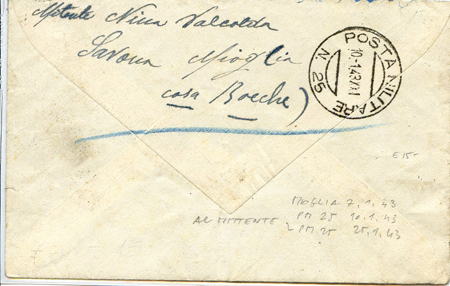 Mittente Nina Valcolda
Savona Mioglia
casa Boeche)
POSTA MILITARE
N. 25
10.1.43.XXI
E 15-
MIOGLIA 7.1.43
AL MITTENTE PM 25 10.1.43
PM 25 25.1.43